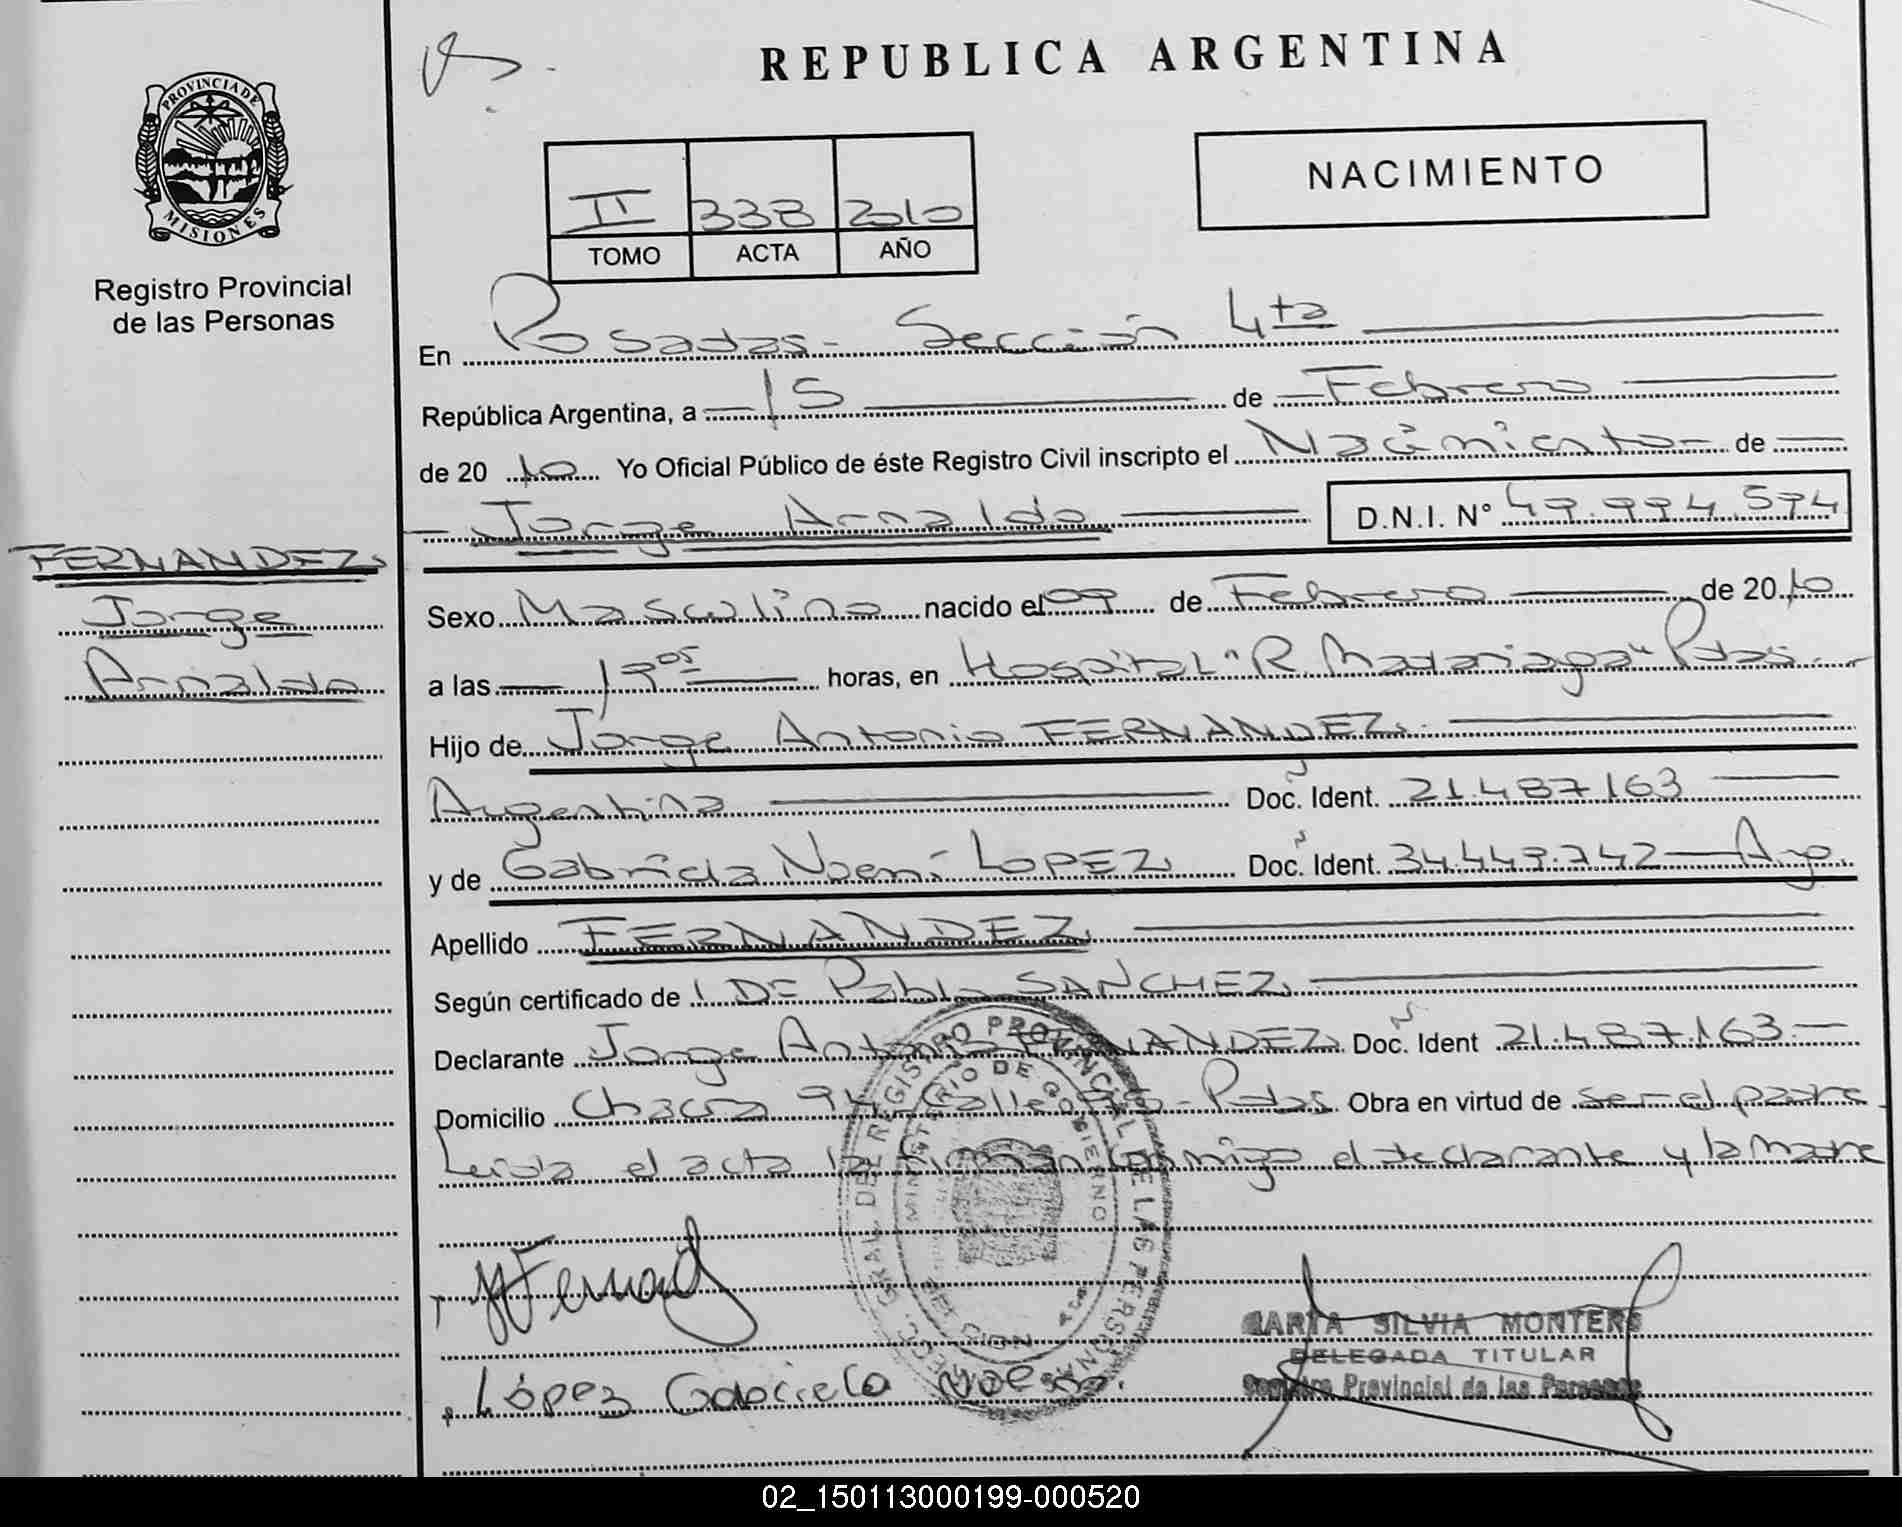 REPUBLICA ARGENTINA
PROVINCIA DE
MISIONES
Registro Provincial
de las Personas
II 338 2010
TOMO ACTA AÑO
NACIMIENTO
En Posadas - Sección 4ta
República Argentina, a 15 de Febrero
de 2010 Yo Oficial Público de éste Registro Civil inscripto el Nacimiento de
Jorge Arnaldo D.N.I. N° 49.994.594
FERNANDEZ
Jorge
Arnaldo
Sexo Masculino nacido el 09 de Febrero de 2010
a las 19 05 horas, en Hospital "R. Madariaga" Pdas.
Hijo de Jorge Antonio FERNANDEZ
Argentina Doc. Ident. 21.487.163
y de Gabriela Noemí LOPEZ Doc. Ident. 34.449.742 - Arg.
Apellido FERNANDEZ
Según certificado de DE Pablo SANCHEZ
Declarante Jorge Antonio FERNANDEZ Doc. Ident 21.487.163.-
Domicilio Chacra 94 - Calle - Pdas. Obra en virtud de ser el padre
Leída el acta la firman conmigo el declarante y la madre
REGISTRO PROVINCIAL DE LAS PERSONAS
MINISTERIO DE GOBIERNO
López Gabriela Noemi.
MARTA SILVIA MONTERO
DELEGADA TITULAR
Registro Provincial de las Personas
02_150113000199-000520